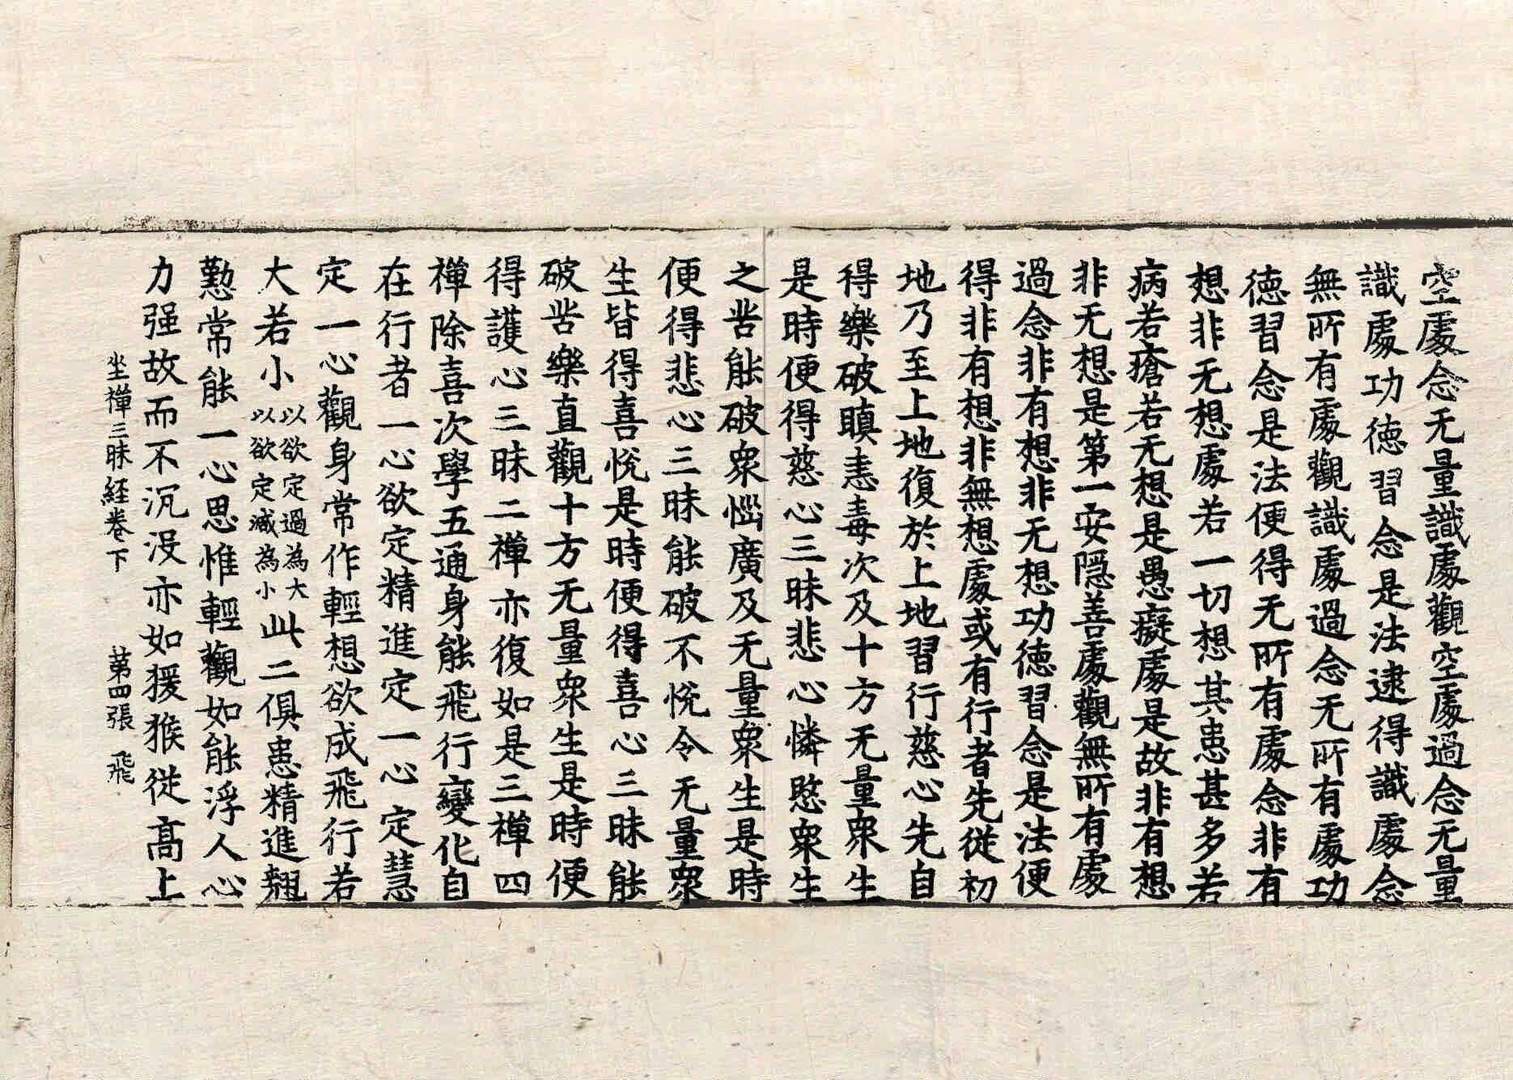 空處念无量識處觀空處過念无量
識處功德習念是法逮得識處念
無所有處觀識處過念无所有處功
德習念是法便得无所有處念非有
想非无想處若一切想其患甚多若
病若瘡若无想是愚癡處是故非有想
非无想是第一安隱善處觀無所有處
過念非有想非无想功德習念是法便
得非有想非無想處或有行者先從初
地乃至上地復於上地習行慈心先自
得樂破瞋恚毒次及十方无量衆生
是時便得慈心三昧悲心憐愍衆生
之苦能破衆惱廣及无量衆生是時
便得悲心三昧能破不悅令无量衆
生皆得喜悅是時便得喜心三昧能
破苦樂直觀十方无量衆生是時便
得護心三昧二禪亦復如是三禪四
禪除喜次學五通身能飛行變化自
在行者一心欲定精進定一心定慧
定一心觀身常作輕想欲成飛行若
大若小以欲定過為大以欲定減為小此二俱患精進翹
懃常能一心思惟輕觀如能浮人心
力强故而不沉没亦如猨猴從高上
坐禪三昧経卷下 第四張 飛